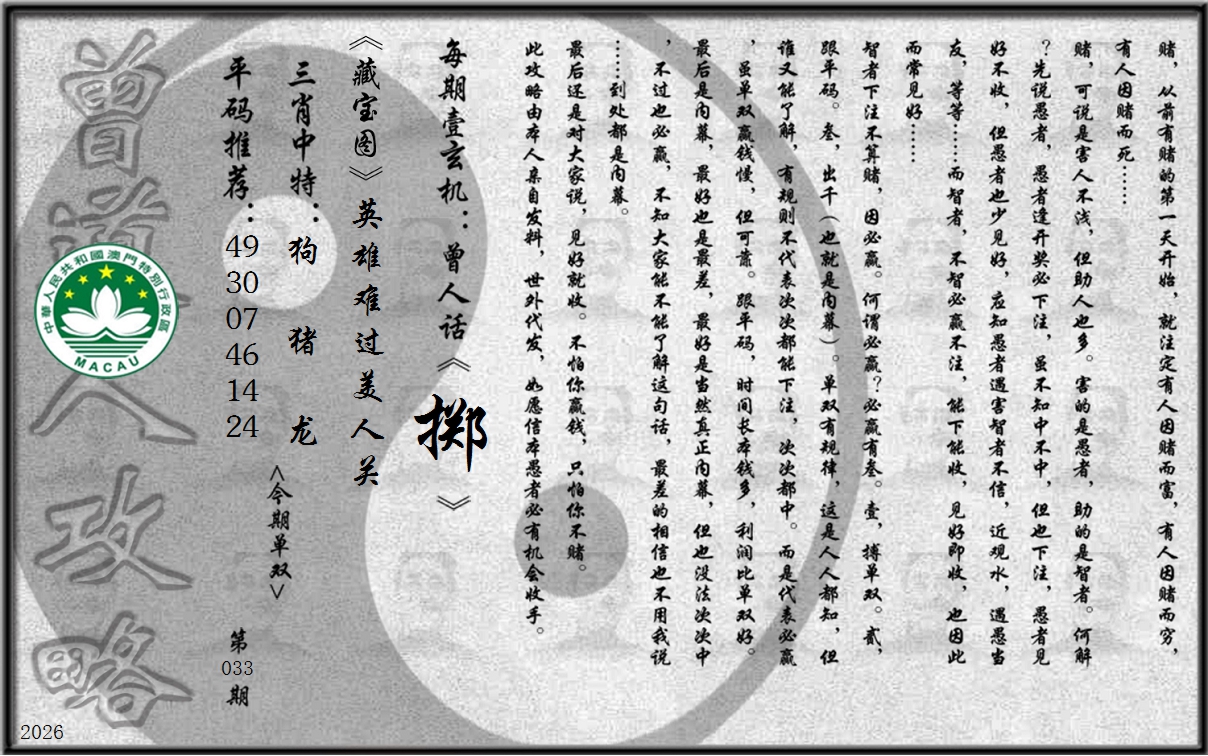 赌，从前有赌的第一天开始，就注定有人因赌而富，有人因赌而穷，
有人因赌而死……
赌，可说是害人不浅，但助人也多。害的是愚者，助的是智者。何解
？先说愚者，愚者逢开奖必下注，虽不知中不中，但也下注，愚者见
好不收，但愚者也少见好，应知愚者遇害智者不信，近观水，遇愚当
友，等等……而智者，不智必赢不注，能下能收，见好即收，也因此
而常见好……
智者下注不算赌，因必赢。何谓必赢？必赢有叁。壹，搏单双。贰，
跟平码。叁，出千（也就是内幕）。单双有规律，这是人人都知，但
谁又能了解，有规则不代表次次都能下注，次次都中。而是代表必赢
，虽单双赢钱慢，但可靠。跟平码，时间长本钱多，利润比单双好。
最后是内幕，最好也是最差，最好是当然真正内幕，但也没法次次中
，不过也必赢，不知大家能不能了解这句话，最差的相信也不用我说
……到处都是内幕。
最后还是对大家说，见好就收。不怕你赢钱，只怕你不赌。
此攻略由本人亲自发料，世外代发，如愿信本愚者必有机会收手。
每期壹玄机：曾人话《掷》
《藏宝图》英雄难过美人关
三肖中特：狗 猪 龙
<今期单双>
平码推荐：49 30 07 46 14 24
第033期
曾道人攻略
中華人民共和國澳門特別行政區
MACAU
2026